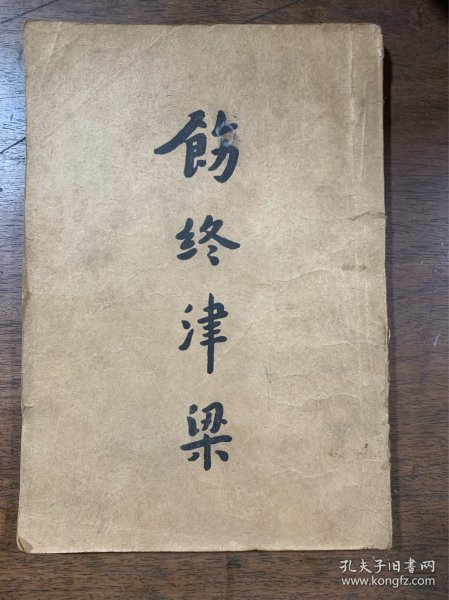 飭終津梁
孔夫子旧书网
www.kongfz.com